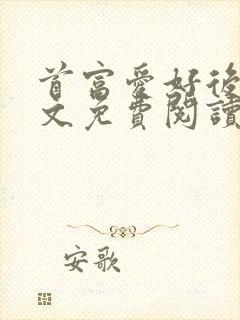 首富愛好後
文免費閱讀
安歌